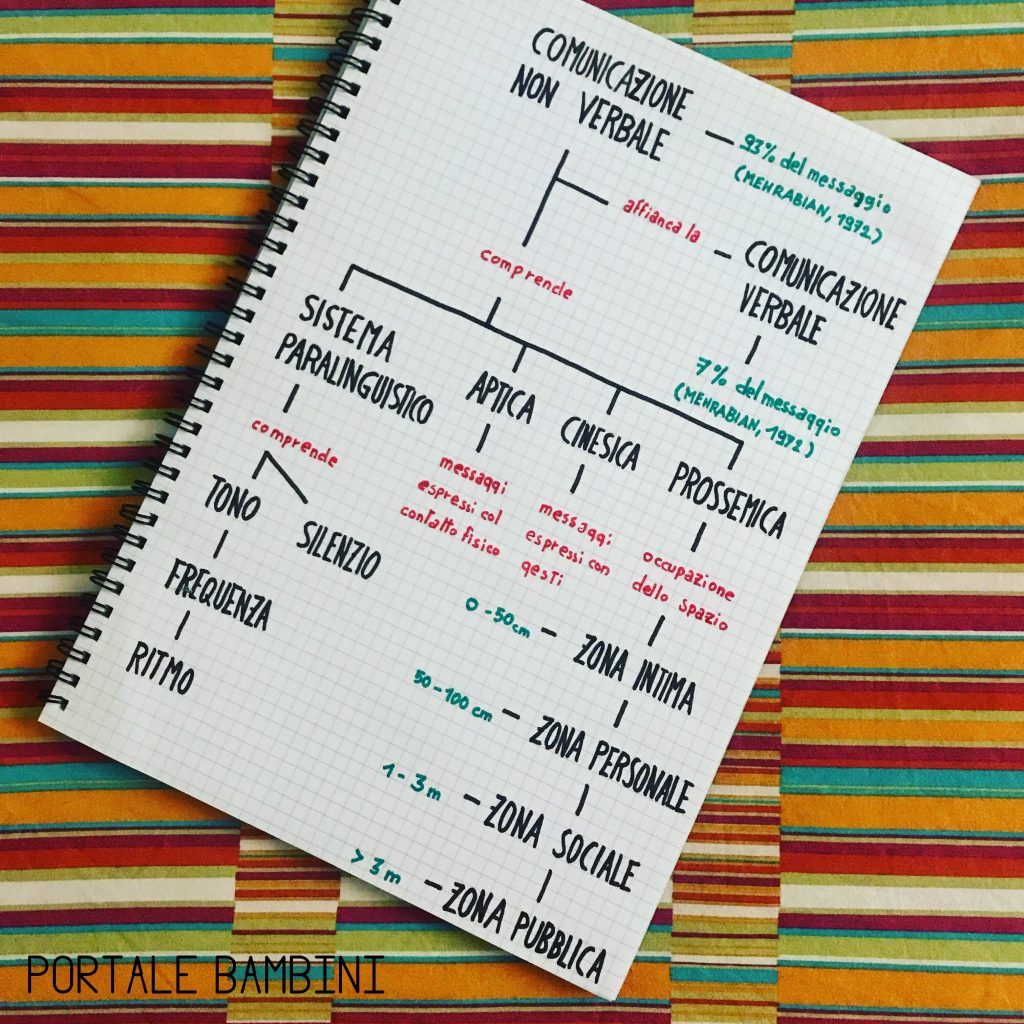 COMUNICAZIONE
NON VERBALE
93% del messaggio
(MEHRABIAN, 1972)
affianca la
COMUNICAZIONE
VERBALE
7% del messaggio
(MEHRABIAN, 1972)
comprende
SISTEMA
PARALINGUISTICO
comprende
TONO
FREQUENZA
RITMO
SILENZIO
APTICA
messaggi
espressi col
contatto fisico
CINESICA
messaggi
espressi con
gesti
PROSSEMICA
occupazione
dello spazio
0-50cm
ZONA INTIMA
50-100 cm
ZONA PERSONALE
1-3 m
ZONA SOCIALE
>3 m
ZONA PUBBLICA
PORTALE BAMBINI